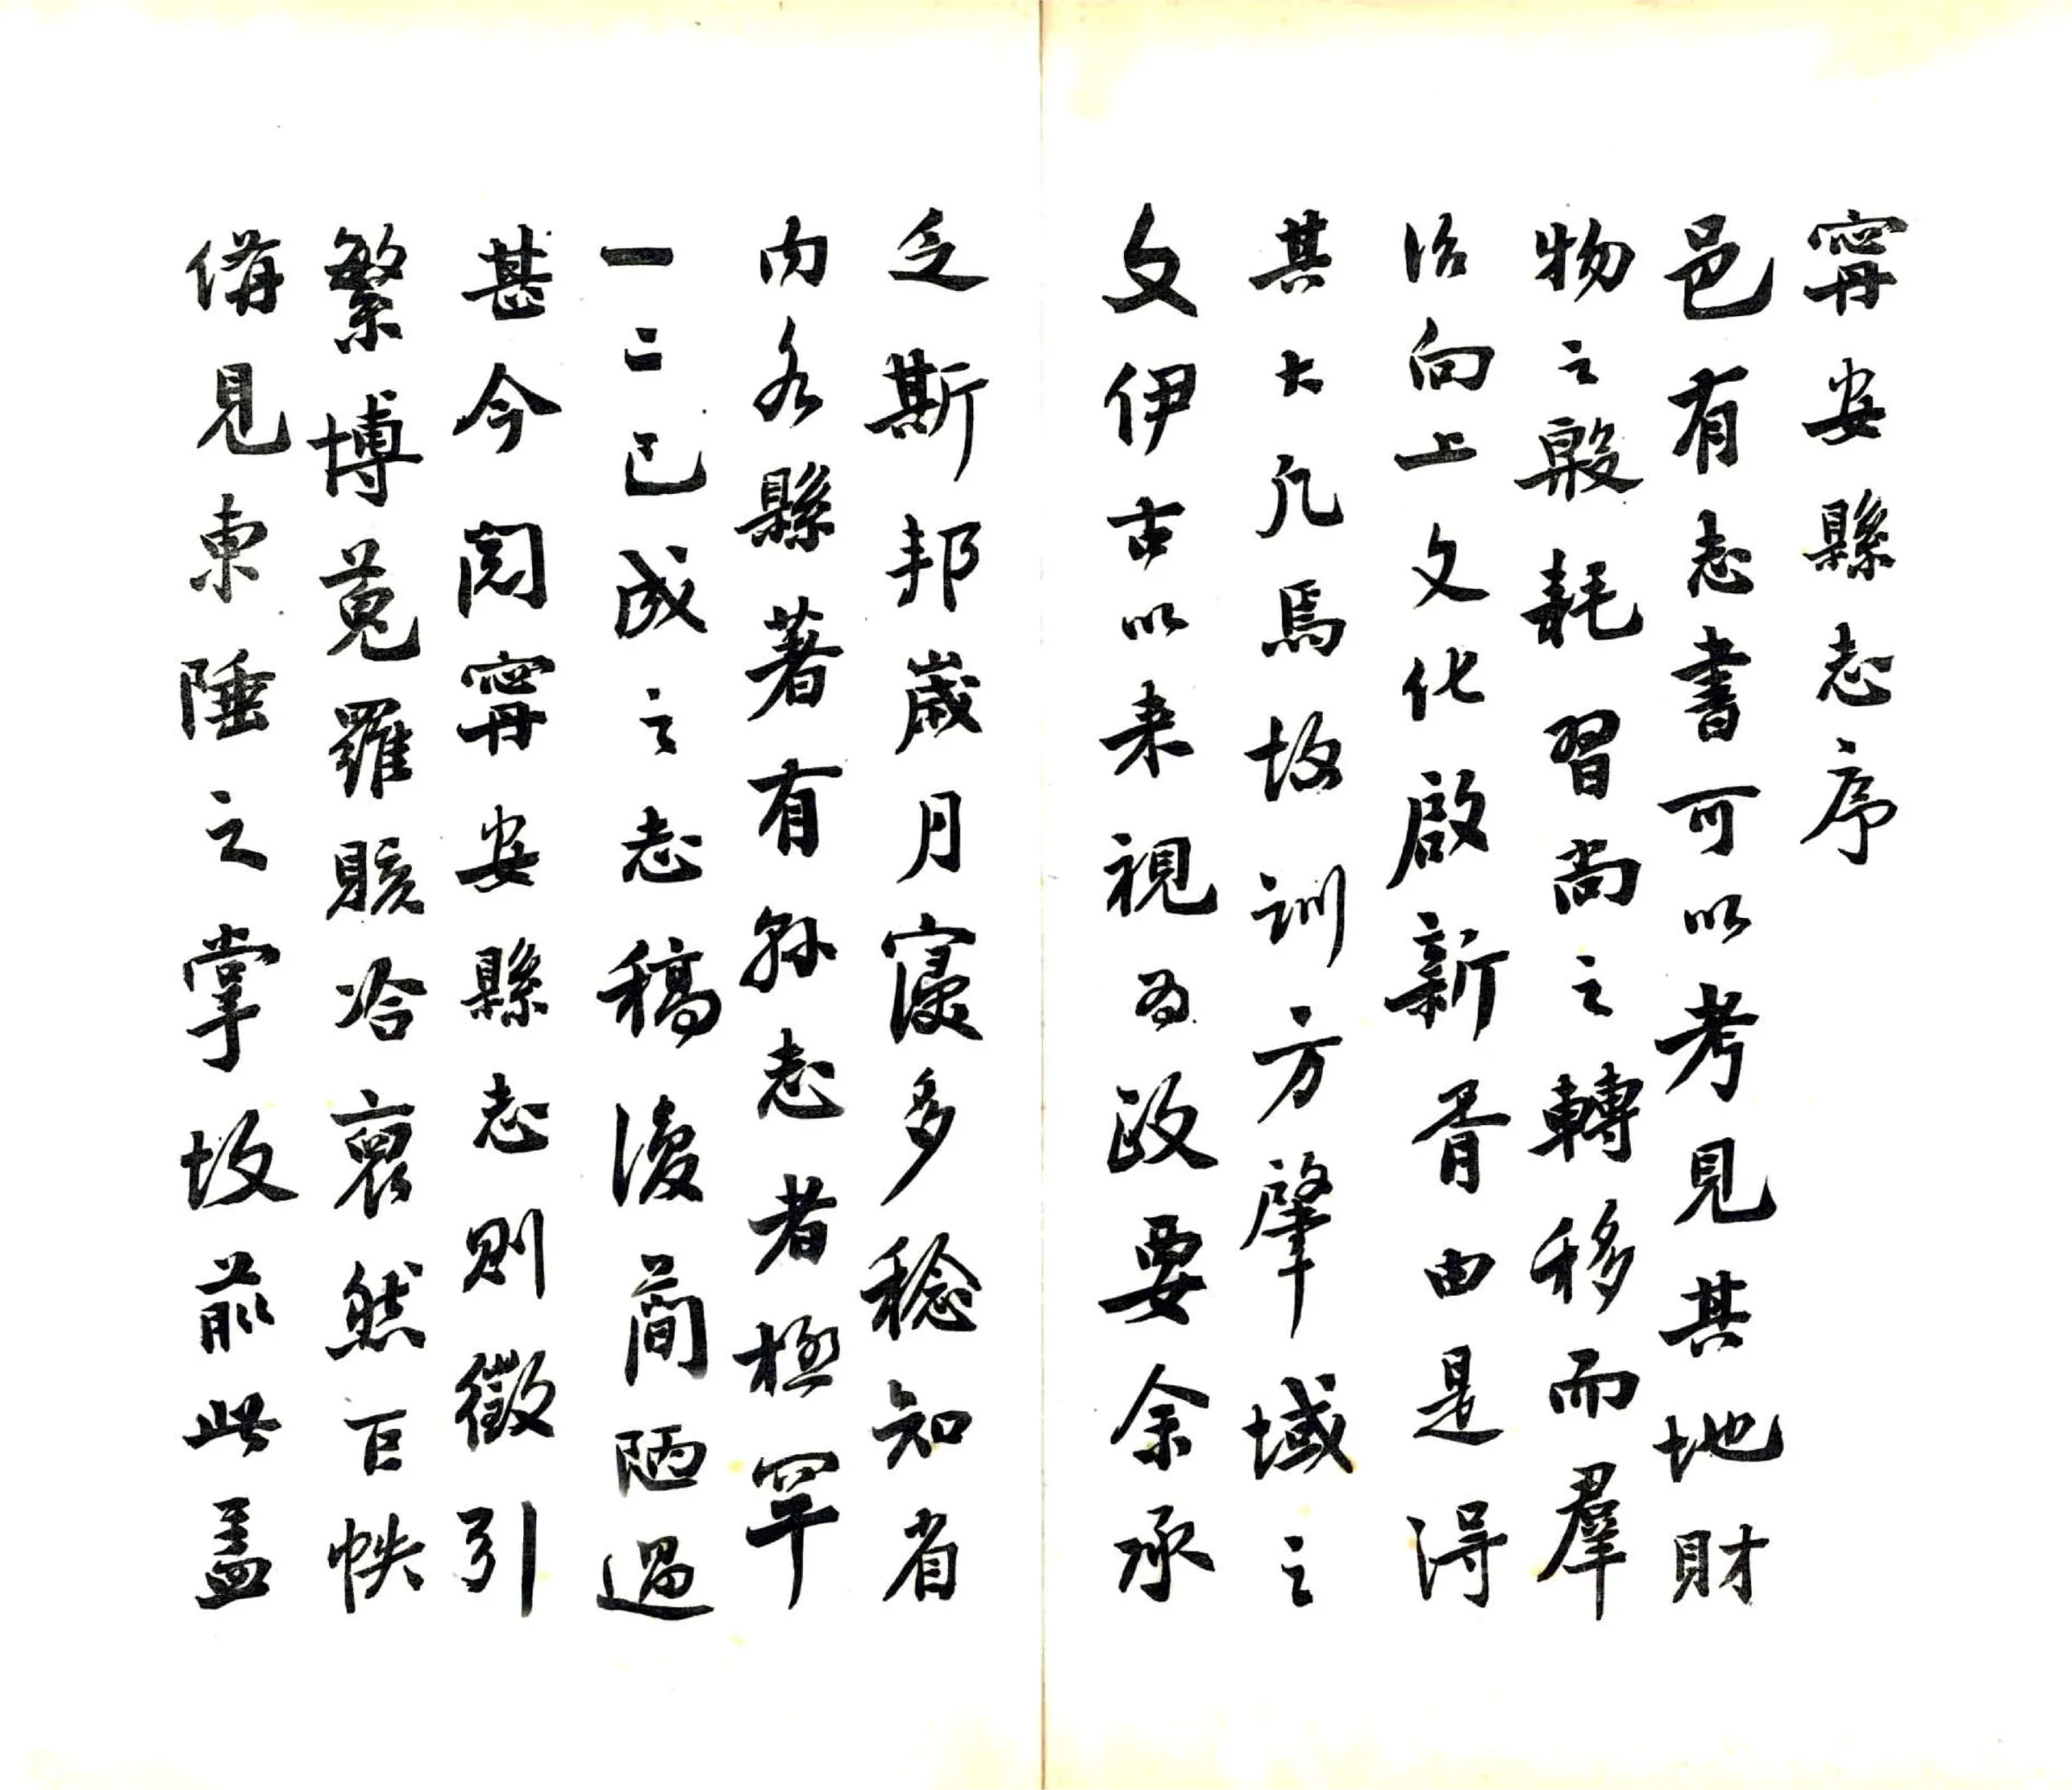 寗安縣志序
邑有志書可以考見其地財
物之殷耗習尚之轉移而羣
治向上文化啟新胥由是得
其大凡焉故訓方肇域之
文伊古以来視為政要余承
乏斯邦歲月寖多稔知省
内各縣著有縣志者極罕
一二已成之志稿復簡陋過
甚今閱寗安縣志則徵引
繁博蒐羅賅洽裒然巨帙
備見東陲之掌故前此蓋